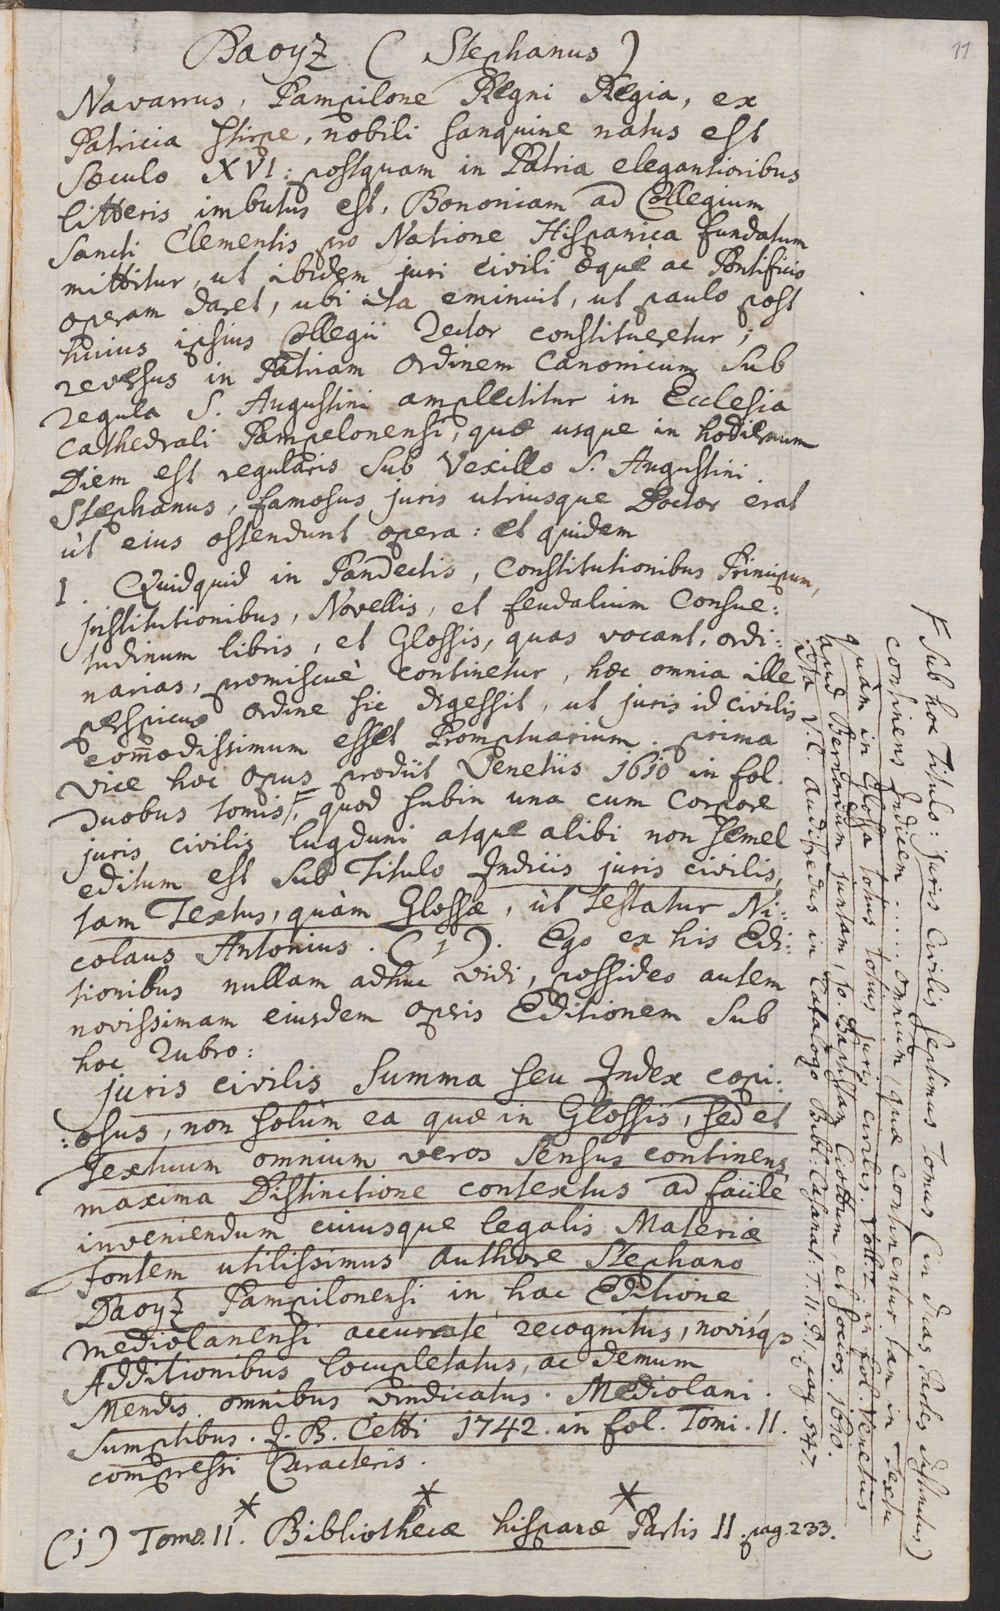 11
Daoyz (Stephanus)
Navarrus, Pampilone Regni Regia, ex
Patricia stirpe, nobili sanquine natus est
Sæculo XVI: postquam in Patria elegantioribus
litteris imbutus est, Bononiam ad Collegium
Sancti Clementis pro Natione Hispanica fundatum
mittitur, ut ibidem juri civili æque ac Pontificio
operam daret, ubi ita eminuit, ut paulo post
huius ipsius Collegii Rector constitueretur;
reversus in Patriam Ordinem Canonicum Sub
regula S. Augustini amplectitur in Ecclesia
Cathedrali Pampelonensi, quæ usque in hodiernum
Diem est regularis sub Vexillo S. Augustini.
Stephanus, famosus juris utriusque Doctor erat
ùt eius ostendunt opera: et quidem
I. Quidquid in Pandectis, Constitutionibus Principum,
institutionibus, Novellis, et feudalium Consue:
tudinum libris, et Glossis, quas vocant, ordi:
narias, promiscuè continetur, hæc omnia ille
perspicuo ordine sic digessit, ut juris id civilis
com̄odissimum esset Promptuarium. prima
vice hoc opus prodiit Venetiis 1610 in fol.
duobus tomis F, quod subin una cum Corpore
juris civilis lugduni atque alibi non semel
editum est Sub Titulo Indicis juris civilis,
tam Textus, quàm Glossæ, ùt testatur Ni:
colaus Antonius. (1). Ego ex his Edi:
tionibus nullam adhuc vidi, possideo autem
novissimam eiusdem operis Editionem Sub
hoc Rubro:
juris civilis Summa seu Index copi:
:osus, non solùm ea quæ in Glossis, sed et
Textuum omnium veros sensus continens
maxima Distinctione contextus ad facilè
inveniendum cuiusque legalis Materiæ
fontem utilissimus authore Stephano
Daoyz Pampilonensi in hac Editione
mediolanensi accuratè recognitus, novisq3
Additionibus locupletatus, ac demum
Mendis omnibus vindicatus. Mediolani.
Sumptibus. J. B. Cetti 1742. in fol. Tomi. II.
compressi Caracteris.
* * *
(1) Tomo. II. Bibliothecæ hispanæ Partis II. pag. 233.
F Sub hoc Titulo: juris Civilis Septimus Tomus (in duas Partes distinctus)
continens Indicem .... omnium, quæ continentur tam in Textu
quàm in Glossa totius juris civilis. Voll. 2 in fol. Venetiis
apud Bernardum juntam, Jo. Baptistam Ciottum, et socios, 1610.
V. C. Audifredus in Catalogo Bibl. Casanat. T. II. pag. 547.